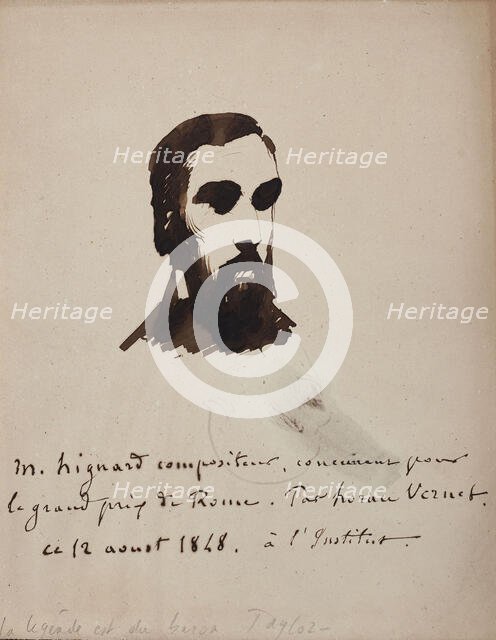 Heritage Heritage
Heritage Heritage
Heritage Heritage
©
M. hignard compositeur, concurrent pour
le grand prix de Rome. Par horace Vernet.
ce 12 aoust 1848. à l'Institut.
La légende est du baron Taylor